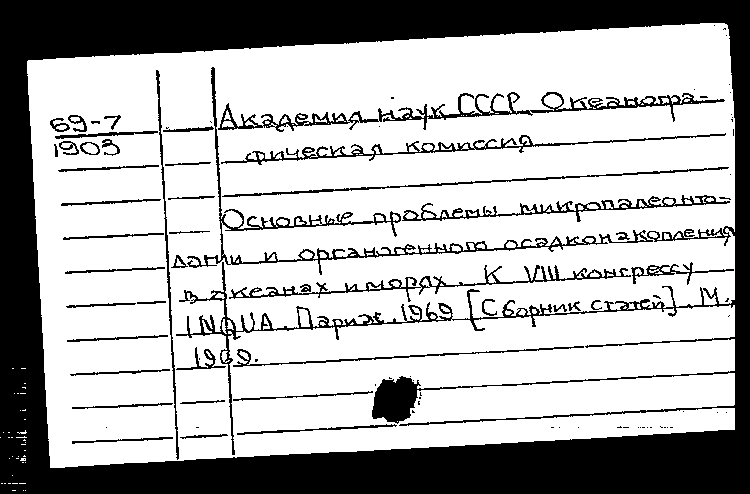 69-7
1903
Академия наук СССР. Океаногра-
фическая комиссия
Основные проблемы микропалеонто-
логии и органогенного осадконакопления
в океанах и морях. К VIII конгрессу
INQUA. Париж. 1969 [Сборник статей]. М.,
1969.